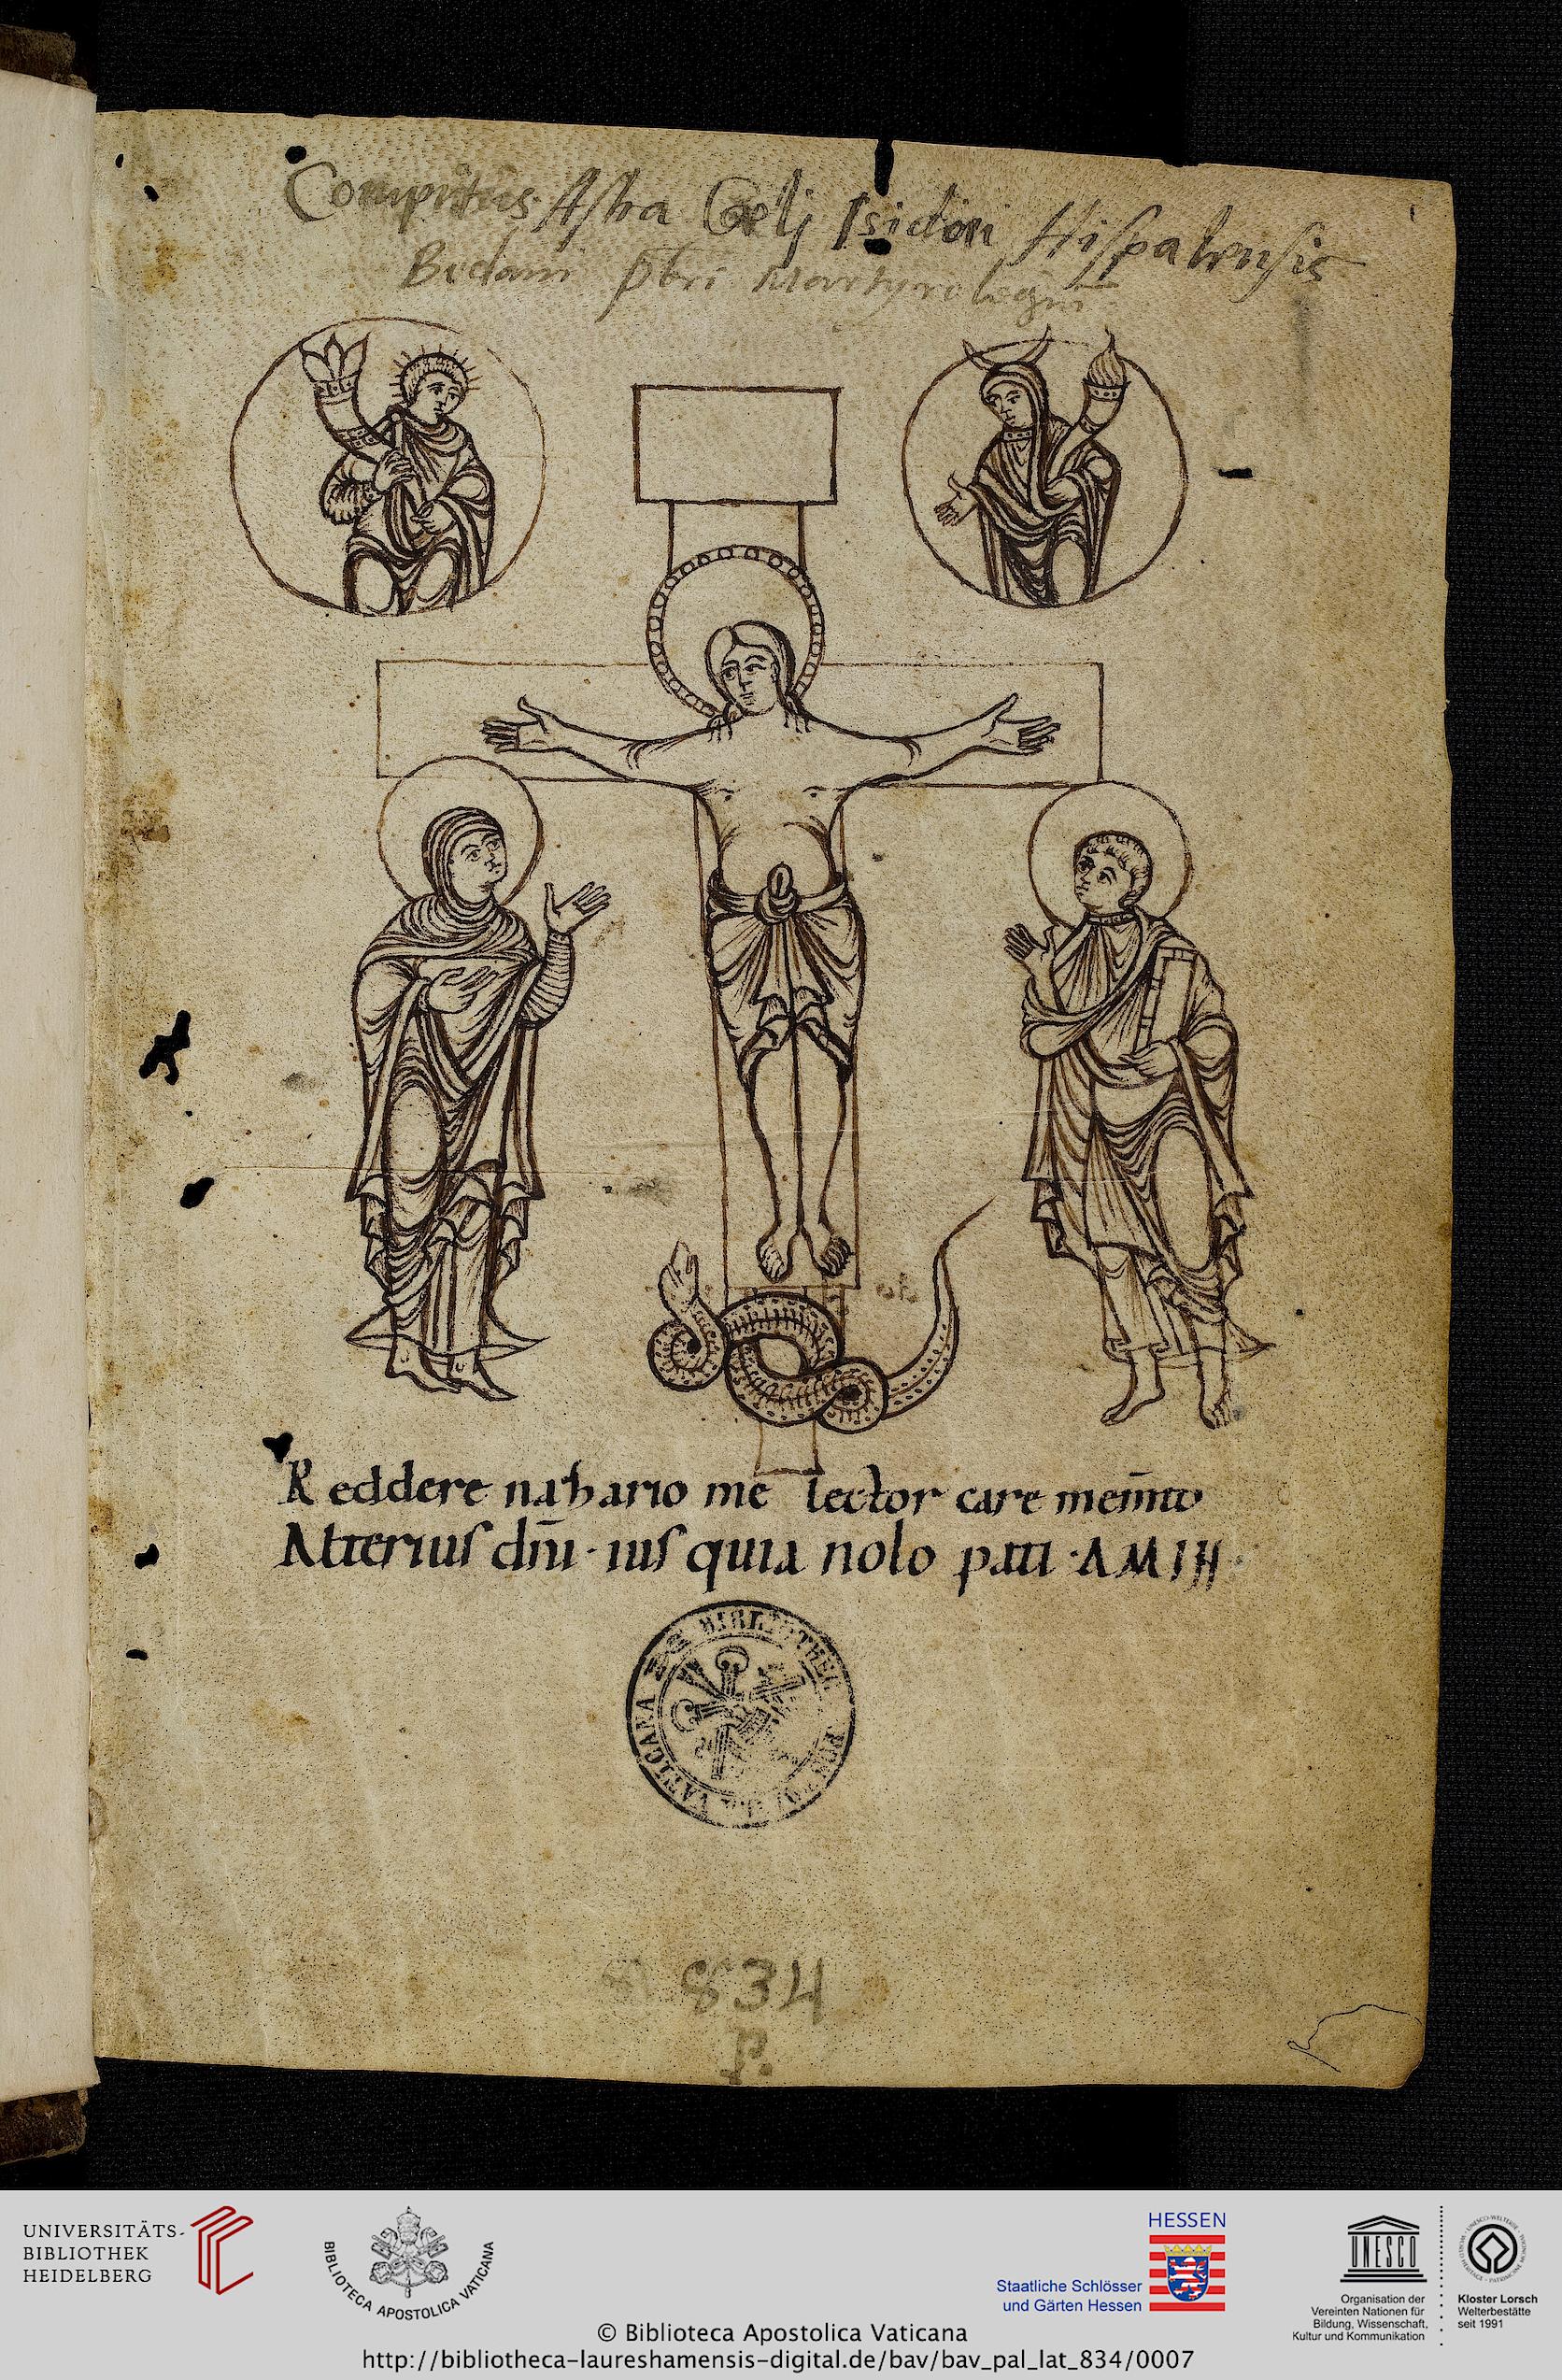 Computus Astra Celj Isidori Hispalensis
Bedani p̄bri Martyrologiū
Reddere nazario me lector care mem̄to
Alterius dn̄i · ius quia nolo pati · AMHN
BIBLIOTHEC
VATICANA
8834
UNIVERSITÄTS-
BIBLIOTHEK
HEIDELBERG
BIBLIOTECA APOSTOLICA VATICANA
HESSEN
Staatliche Schlösser
und Gärten Hessen
UNESCO
Organisation der
Vereinten Nationen für
Bildung, Wissenschaft,
Kultur und Kommunikation
Kloster Lorsch
Welterbestätte
seit 1991
© Biblioteca Apostolica Vaticana
http://bibliotheca-laureshamensis-digital.de/bav/bav_pal_lat_834/0007